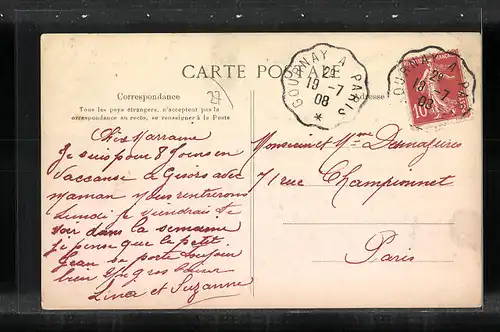 CARTE POSTALE
Correspondance
Tous les pays étrangers, n'acceptent pas la
correspondance au recto, se renseigner à la Poste
27
Adresse
GOURNAY A PARIS
2E
19 -7
08
GOURNAY A PA
2E
19 -7
08
10
Chère Marraine
Je suis pour 8 Jours en
vaccanse à Gisors avec
maman nous rentrerons
Lundi je viendrai te
voir dans la semaine
je pense que le petit
Jean se porte toujours
bien gros
Line et Suzanne
Monsieur et Mme
71 rue Championnet
Paris